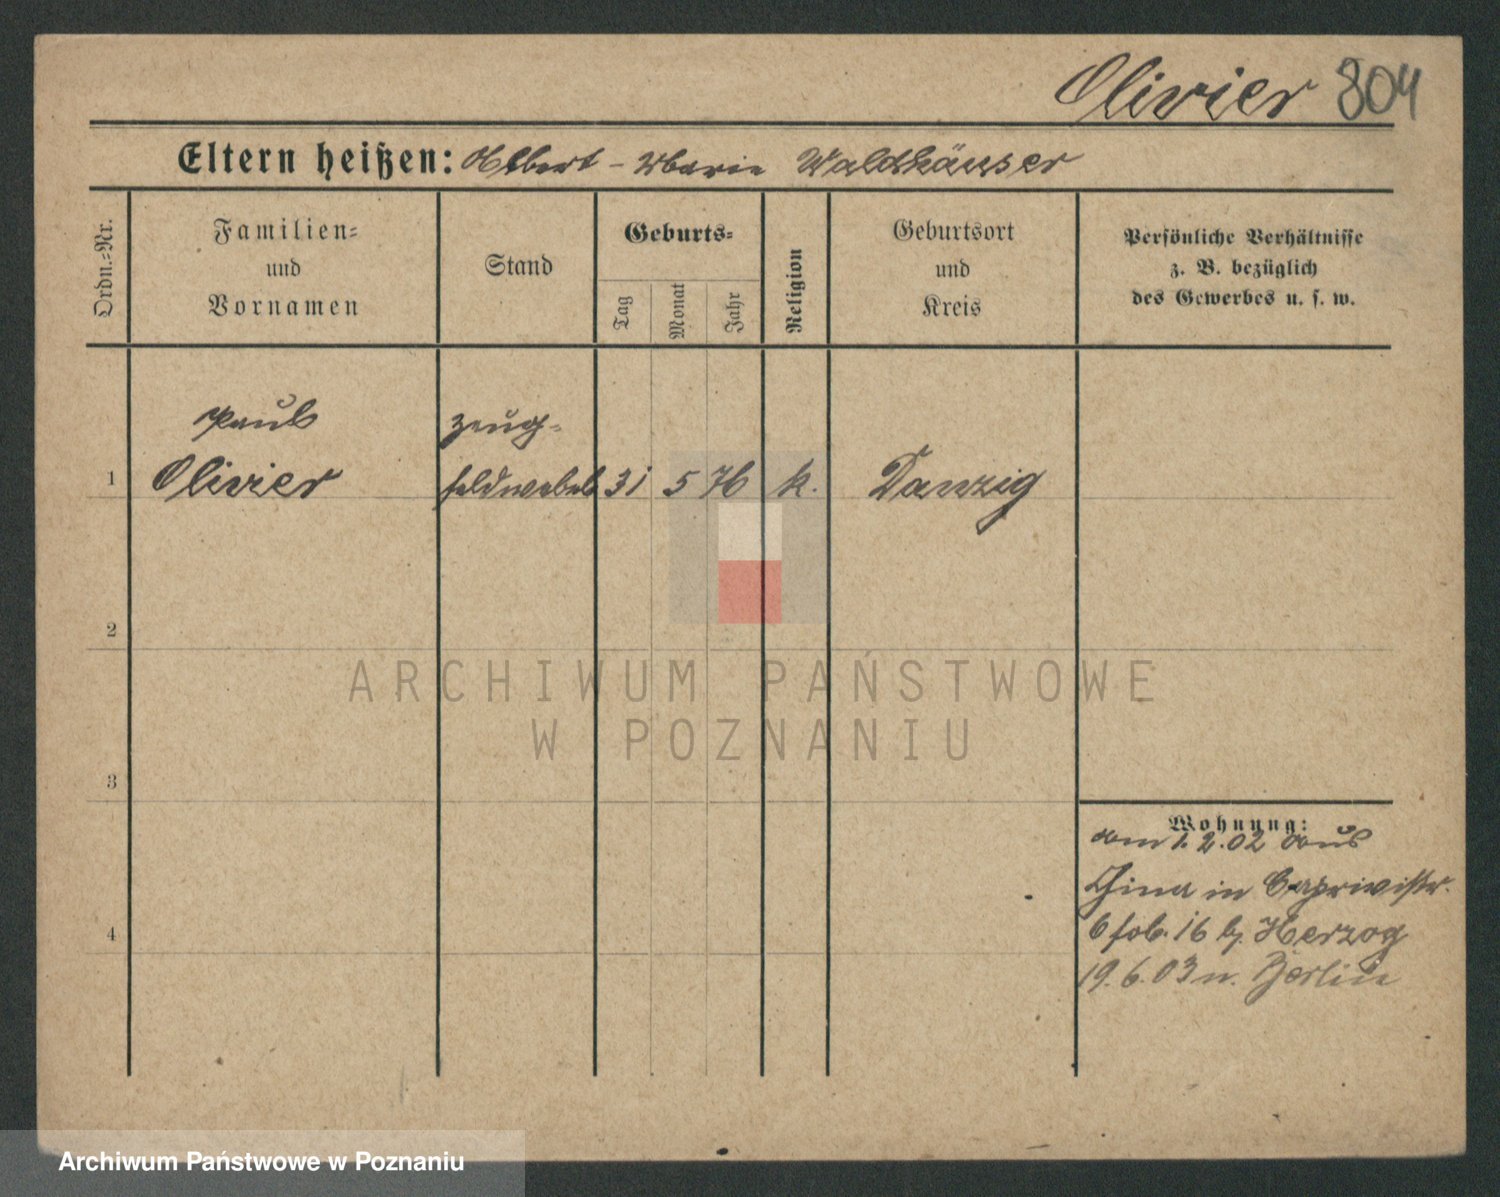 Olivier 804
Eltern heißen: Albert - Marie Waldhäuser
Ordn.-Nr.
Familien-
und
Vornamen
Stand
Geburts-
Tag
Monat
Jahr
Religion
Geburtsort
und
Kreis
Persönliche Verhältnisse
z. B. bezüglich
des Gewerbes u. s. w.
Paul
Zeug-
1 Olivier feldwebel 31 5 76 k. Danzig
2
3
4
Wohnung:
am 1.2.02 aus
China in Caprivistr.
6 fol. 16 b. Herzog
19.6.03 n. Berlin
ARCHIWUM PAŃSTWOWE
W POZNANIU
Archiwum Państwowe w Poznaniu